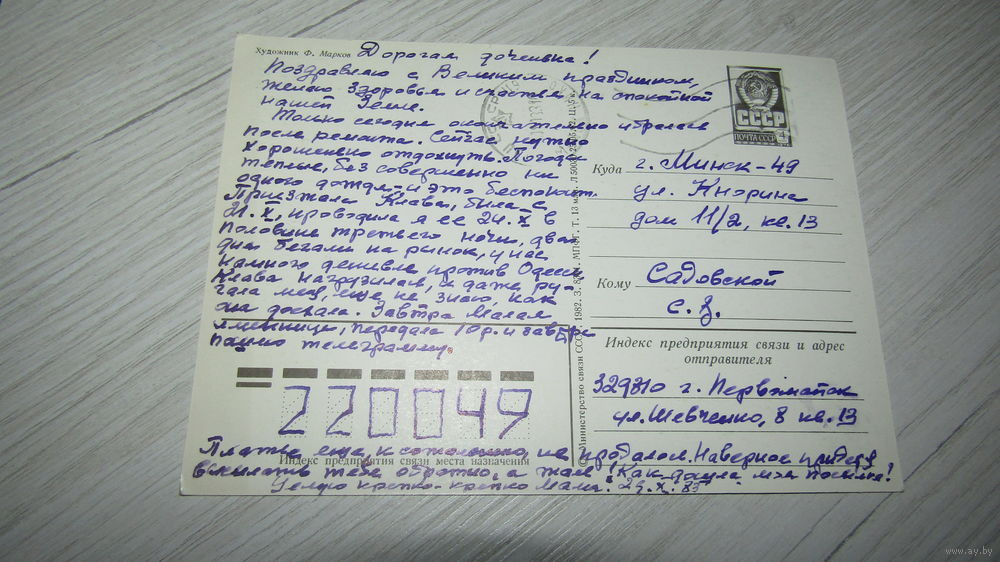 Художник Ф. Марков
Дорогая доченька!
Поздравляю с Великим праздником,
желаю здоровья и счастья на спокойной
нашей Земле.
Только сегодня окончательно убралась
после ремонта. Сейчас нужно
хорошенько отдохнуть. Погода
теплые, без совершенно ни
одного дождя - и это беспокоит.
Приезжала Клава, была с
21.X, проводила я ее 24.X в
половине третьего ночи, два
дня бегали на рынок, у нас
намного дешевле против Одессы
Клава нагрузилась, и даже ру-
гала меня, еще не знаю, как
она доехала. Завтра
именинница, передала 10 р. и завтра
пошлю телеграмму.
220049
Индекс предприятия связи места назначения
Платье еще, к сожалению, не продалось. Наверное придется
выслать тебе обратно, а жаль! Как дошла моя посылка?
Целую крепко-крепко Мама.
© Министерство связи СССР, 1982.
ПОЧТА СССР
4
СССР
Куда г. Минск-49
ул. Кнорина
дом 11/2, кв. 13
Кому Садовской
С. З.
Индекс предприятия связи и адрес
отправителя
329810 г. Первомайск
ул. Шевченко, 8 кв. 13
www.ay.by